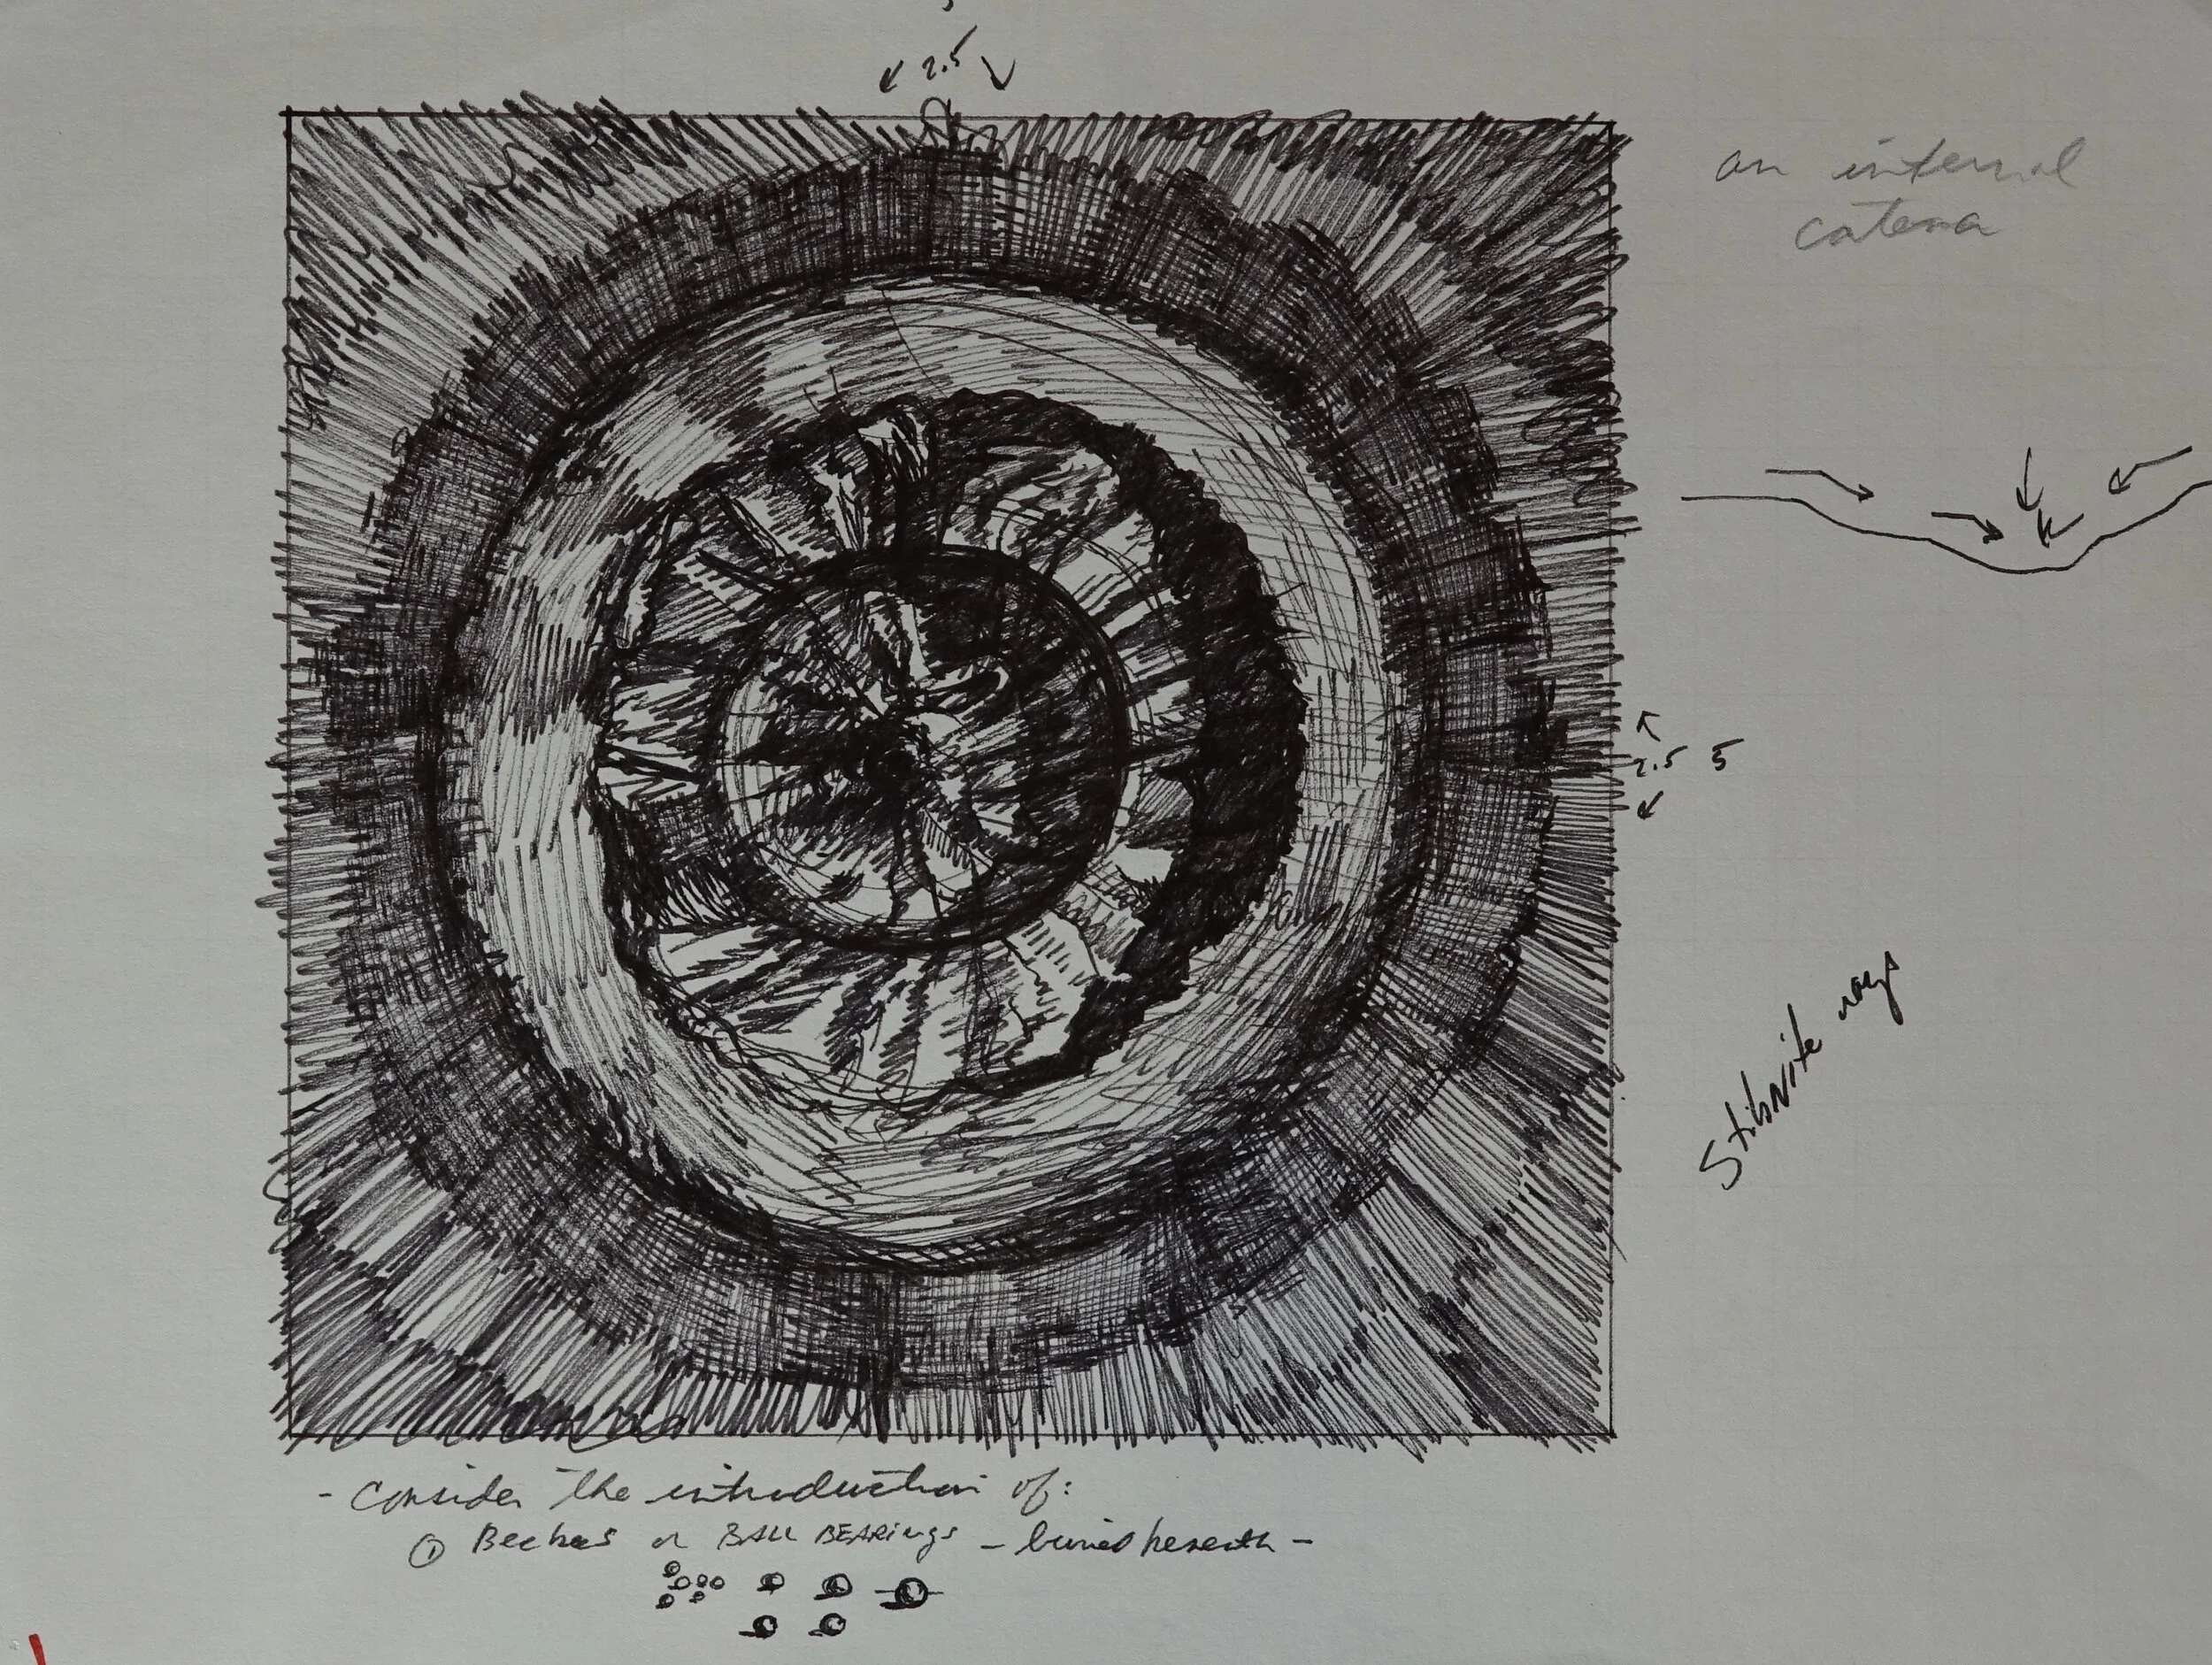 2.5
an internal
catena
2.5 5
Stibnite rays
- Consider the introduction of:
① or BALL BEARINGS - buried beneath -